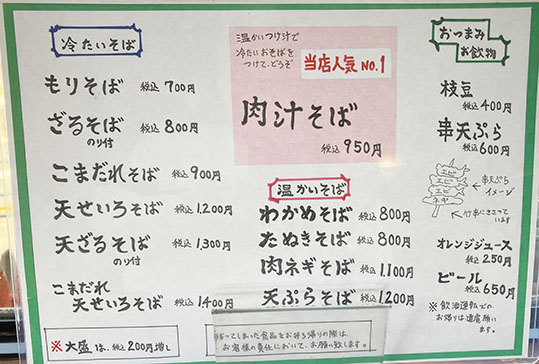 冷たいそば
もりそば 税込 700円
ざるそば 税込 800円
のり付
こまだれそば 税込 900円
天せいろそば 税込 1,200円
天ざるそば 税込 1,300円
のり付
こまだれ
天せいろそば 税込 1400円
※大盛は、税込 200円増し
温かいつけ汁で
冷たいおそばを
つけて、どうぞ
当店人気 NO.1
肉汁そば
税込 950円
温かいそば
わかめそば 税込 800円
たぬきそば 税込 800円
肉ネギそば 税込 1,100円
天ぷらそば 税込 1,200円
ってしまった食品をお持ち帰りの際は、
お客様の責任において、お願い致します。
おつまみ
お飲物
枝豆
税込 400円
串天ぷら
税込 600円
エビ
エビ
エビ
ネギ
←串天ぷら
イメージ
←竹串にささって
います
オレンジジュース
税込 250円
ビール
税込 650円
※飲酒運転での
お帰りは遠慮願い
ます。